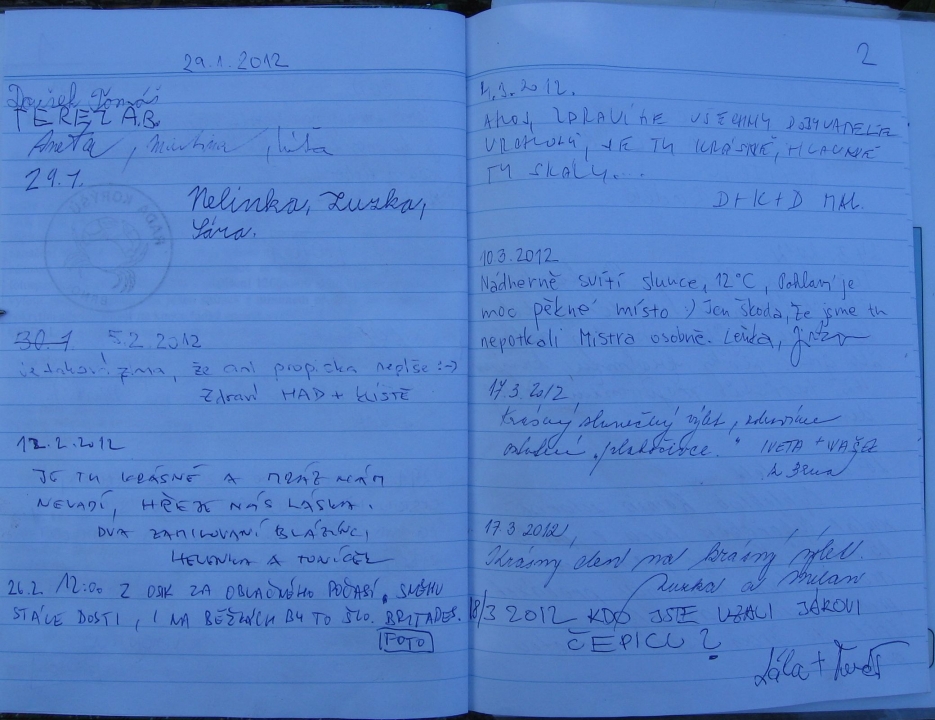 29.1.2012
Doušek Tomáš
TEREZ A.B.
Aneta, Martina,
29.1.
Nelinka, Zuzka,
Sára.
30.1 5.2.2012
je taková zima, že ani propiska nepíše :-)
Zdraví HAD + KLÍŠTĚ
12.2.2012
JE TU KRÁSNĚ A MRÁZ NÁM
NEVADÍ, HŘEJE NÁS LÁSKA.
DVA ZAMILOVANÍ BLÁZÍNCI,
HELENKA A TONÍČEK
26.2. 12:00 Z OSK ZA OBLAČNÉHO POČASÍ, SNĚHU
STÁLE DOSTI, I NA BĚŽKÁCH BY TO ŠLO. BRITADES.
FOTO
2
4.3.2012.
AHOJ, ZDRAVÍME VŠECHNY DOBYVATELE
VRCHOLŮ, JE TU KRÁSNĚ, HLAVNĚ
TY SKÁLY...
D+K+D MAL.
10.3.2012
Nádherně svítí slunce, 12°C, je
moc pěkné místo :) Jen škoda, že jsme tu
nepotkali Mistra osobně. Lenka, Jirka
17.3.2012,
Krásný slunečný výlet,
IVETA + VAŠEK
z Brna
17.3.2012,
Krásný den na krásný výlet.
Zuzka a Milan
18/3 2012 KDO JSTE VZALI JÁKOVI
ČEPICU?